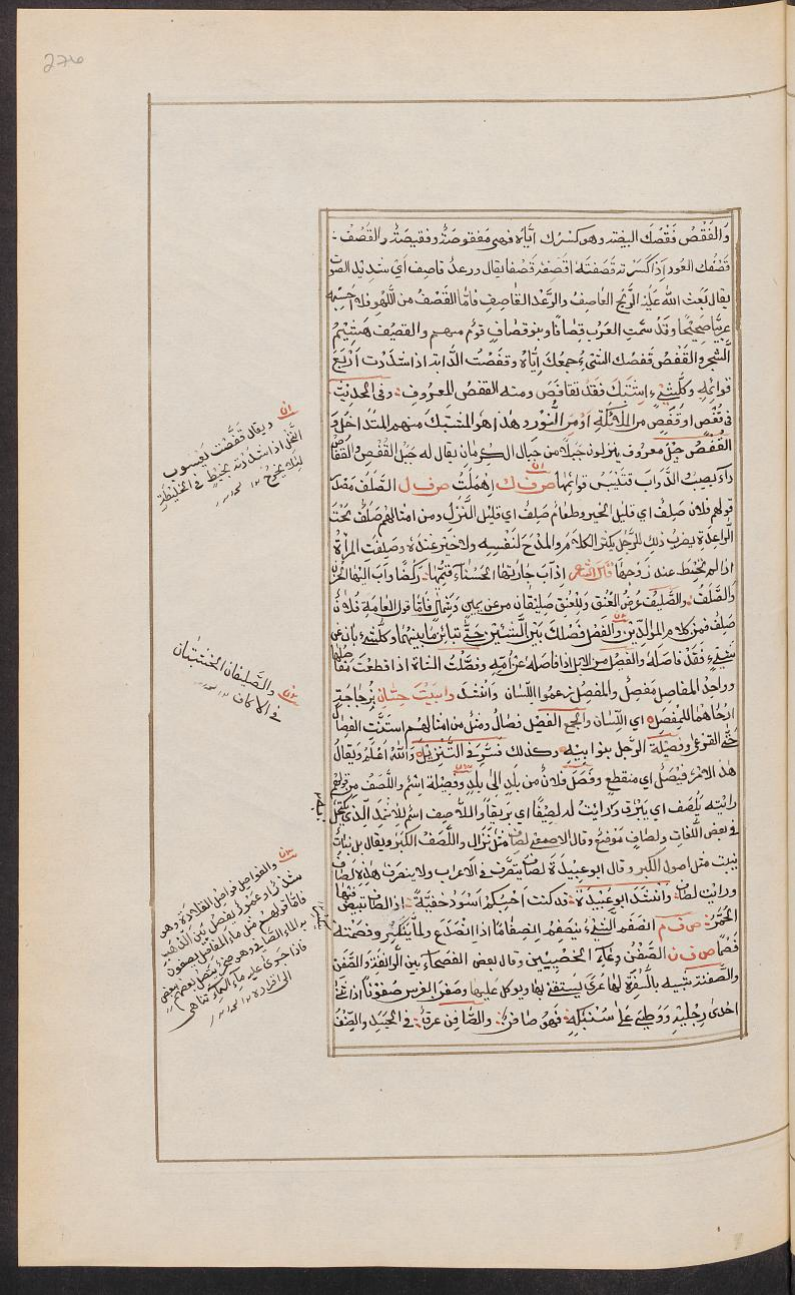 276
والفقص فقصك البيضه وهو كسرك اياه فهى مفقوصة وفقيصة والقصف
قصفك العود اذا كسرته قصفته اقصفه قصفا يقال ورعد قاصف اى شديد الصوت
يقال بعث الله عليه الريح العاصف والرعد القاصف فاما القصف من اللهو فلا احسبه
عربيا صحيحا وقد سمت العرب قصافا وبنو قصاف قوم منهم والقصيف هشيم
الشجر والقفص قفصك الشئ وجمعك اياه وقفصت الدابه اذا شددت اربع
قوائمه وكل شئ اشتبك فقد تقافص ومنه القفص المعروف وفى الحديث
فى قفص او قفص من الملائكة او من النور وهذا هو المشتبك منهم المتداخل و
القفص جيل معروف ينزلون جبلا من جبال الكرمان يقال له جبل القفص والقفاص
داء يصيب الدواب فتيبس قوائمها ص ف ك اهملت ص ف ل الصلف مصدر
قولهم فلان صلف اى قليل الخير وطعام صلف اى قليل النزل ومن امثالهم صلف تحت
الراعدة يضرب ذلك للرجل يكثر الكلام والمدح لنفسه ولا خير عنده وصلفت المرأة
اذا لم تحظ عند زوجها قال الشاعر اذا آب جارتها الحسناء قيمها ركضا وآب اليها الحزن
والصلف والصليف عرض العنق وللعنق صليفان من عن يمين وشمال فاما قول العامة فلان
صلف فمن كلام المولدين والفصل فصلك بين الشيئين حتى تباين ما بينهما وكل شئ بان عن
شئ فقد فاصله والفصيل من الابل اذا فاصله عن امه وفصلت الشاة اذا قطعت مفاصلها
وواحد المفاصل مفصل والمفصل زعموا اللسان وانشد وا بيت حسان بزجاجة
ارخاهما للمفصل اى اللسان والجمع الفصيل فصال ومثل من امثالهم استنت الفصال
حتى القرعى وفصيلة الرجل بنو ابيه وكذلك فسر فى التنزيل والله اعلم ويقال
هذا الامر فيصل اى منقطع وفصل فلان من بلد الى بلد وفصيلة اسم واللصف من قولهم
رايته يلصف اى يبرق ورايت له لصيفا اى بريقا واللاصف اسم للاثمد الذى يكتحل به
فى بعض اللغات ولصاف موضع وقال الاصمعى لصاف مثل نزال واللصف الكبر ويقال بل نبات
ينبت مثل اصول الكبر وقال ابو عبيدة لصاف يتصرف فى الاعراب ولا ينصرف هذه لصاف
ورايت لصاف وانشد ابو عبيدة قد كنت احسبكم اسود خفية اذا لصاف تبيض فيها
الحمر ص ف م انصفم الشئ ينصفم انصفاما اذا انصدع ولما ينكسر وفصمته
فصما ص ف ن الصفن وعاء الخصيين وقال بعض الفصحاء بين الرانفة والصفن
والصفنة شبيه بالسفرة لها عرى يستقى بها ويوكل عليها وصفن الفرس صفونا اذا ثنى
احدى رجليه ووطئ على سنبكه فهو صافن والصافن عرق فى الجسد والصفن
ويقال قفصت يعسوب
النحل اذا شددته بخيط فى الخلية
لئلا يخرج
والصليفان الخشبتان
فى الاكاف
والفواصل فواصل القلادة وهو
شذر او عمر يفصل بين الذهب